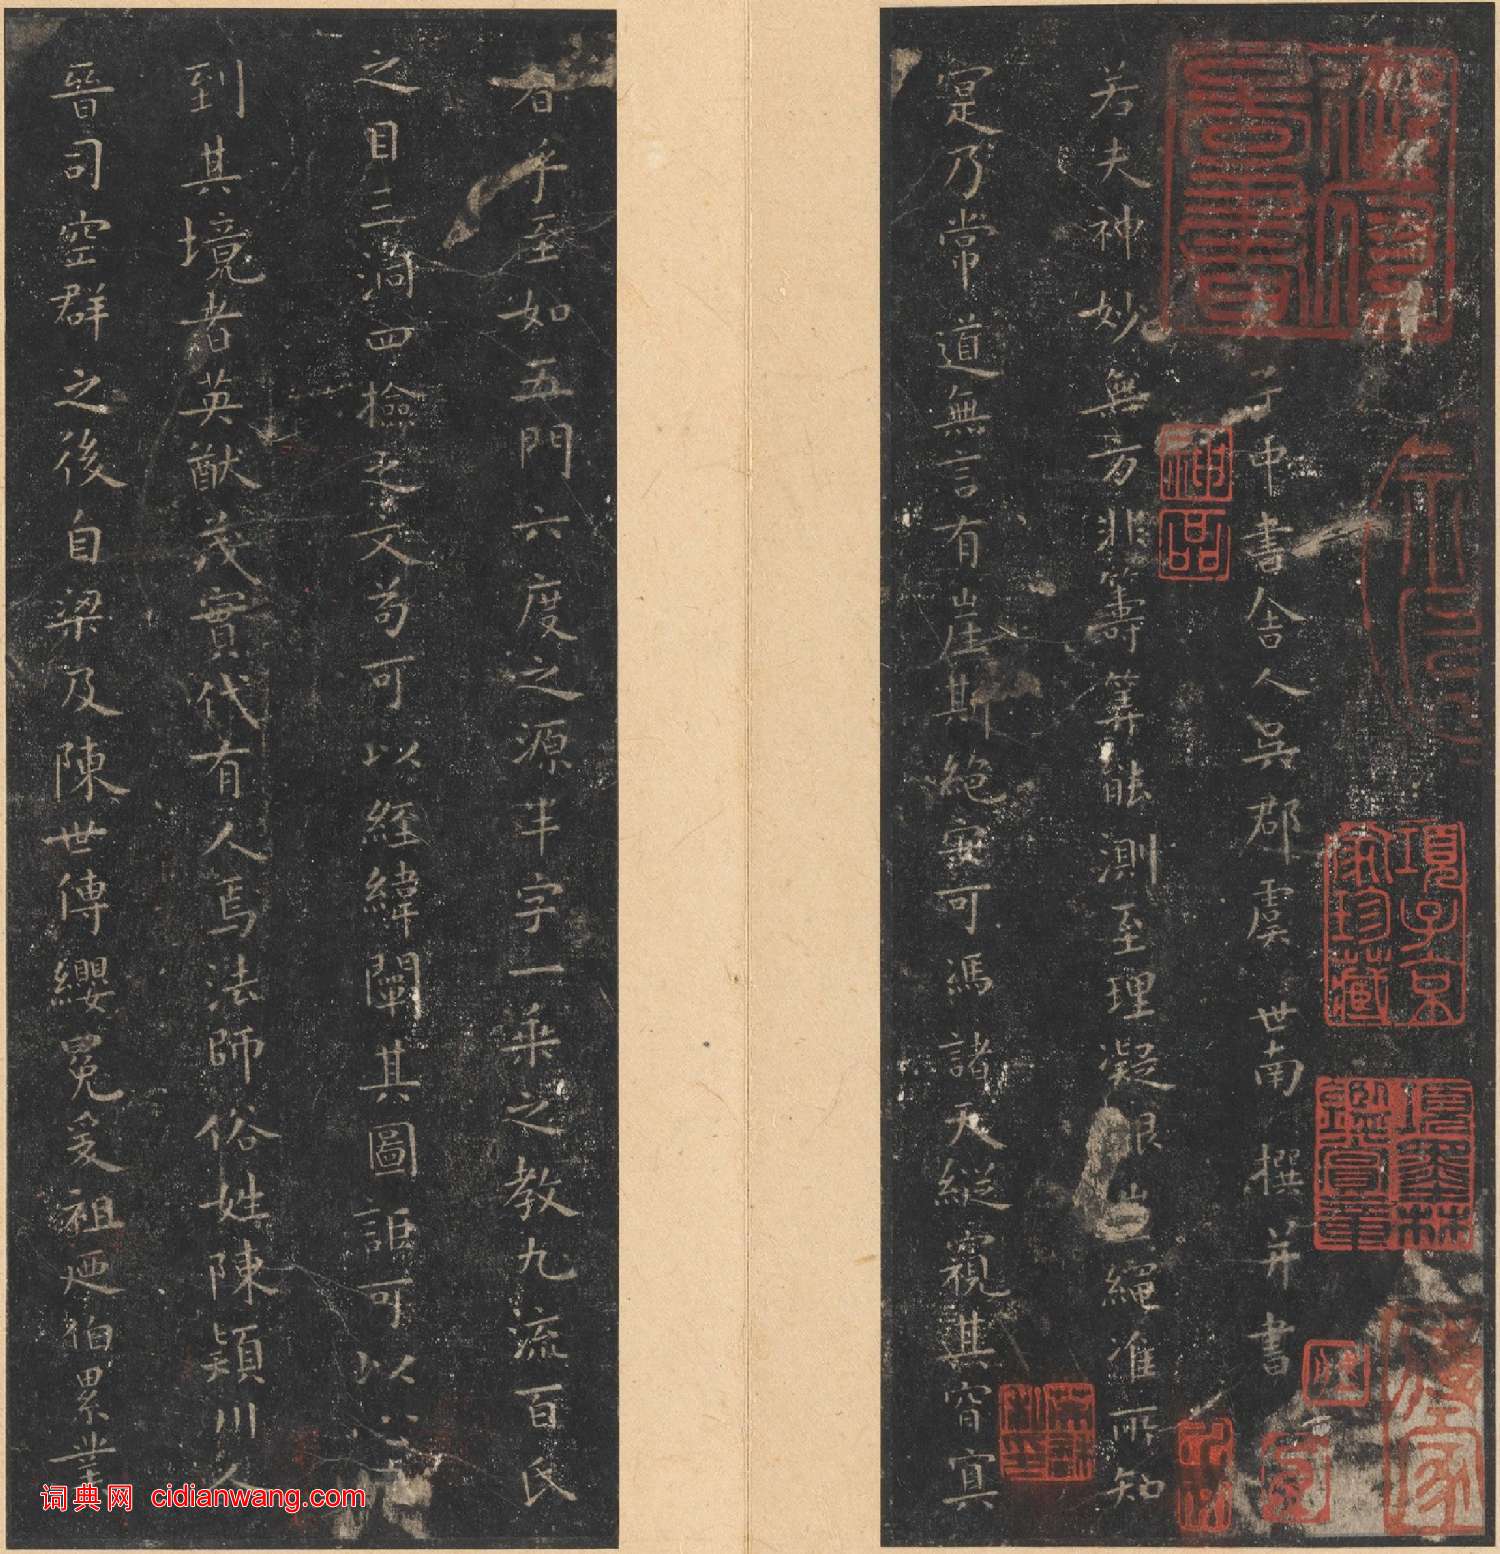 子中書舍人吳郡虞世南撰并書
若夫神妙無方非籌筭能測至理凝眼豈繩准所知
寔乃常道無言有崖斯絶安可馮諸天縱窺其窅寞
者乎至如五門六度之源半字一乘之教九流百氏
之目三洞四檢之文苟可以經緯闡其圖詎可以心
到其境者英猷茂實代有人焉法師俗姓陳潁川人
晉司空群之後自梁及陳世傳纓冕爰祖逎伯累業
神品
項子京家珍藏
項墨林鑑賞章
词典网 cidianwang.com